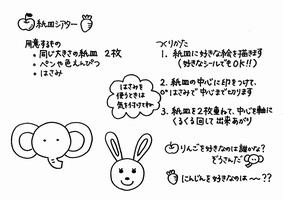 紙皿シアター
用意するもの
・同じ大きさの紙皿 2枚
・ペンや色えんぴつ
・はさみ
はさみを
使うときは
気を付けてね
つくりかた
1. 紙皿に好きな絵を描きます
(好きなシールでもOK!!)
2. 紙皿の中心に印をつけて、
はさみで中心まで切ります
3. 紙皿を2枚重ねて、中心を軸に
くるくる回して出来あがり
りんごを好きなのは誰かな?
ぞうさんだ
にんじんを好きなのは〜??